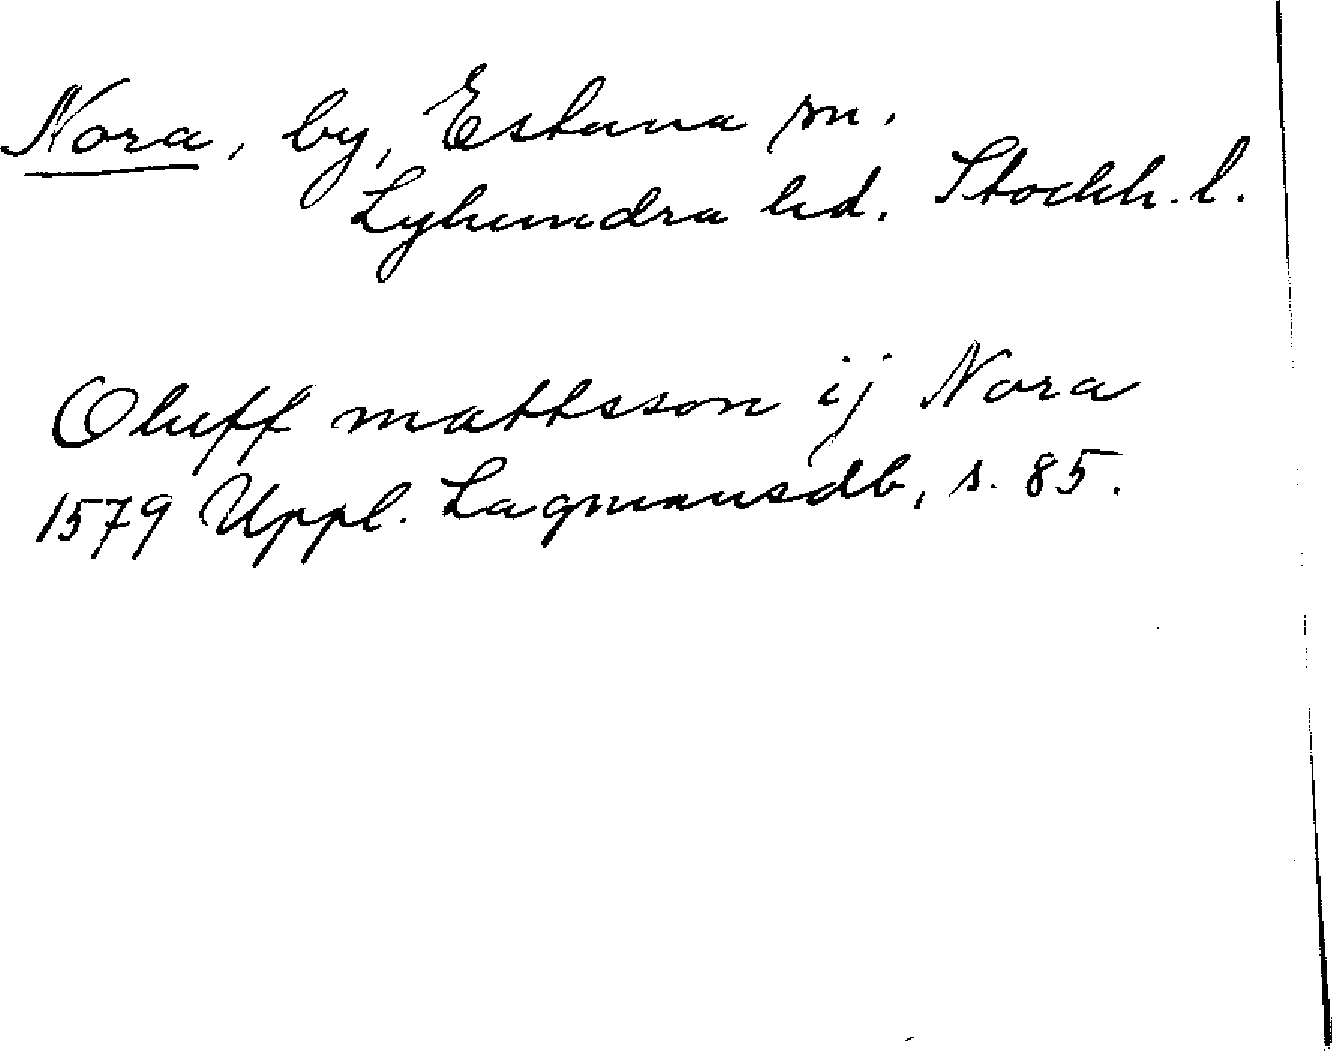 Nora, by, Estuna sn.
Lyhundra hd. Stockh. l.
Oluff mattsson ij Nora
1579 Uppl. Lagmansdb, s. 85.